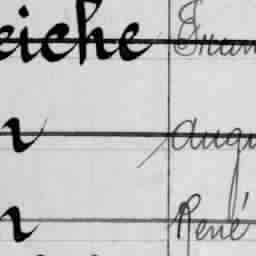 eiche Fran
n Augu
n René